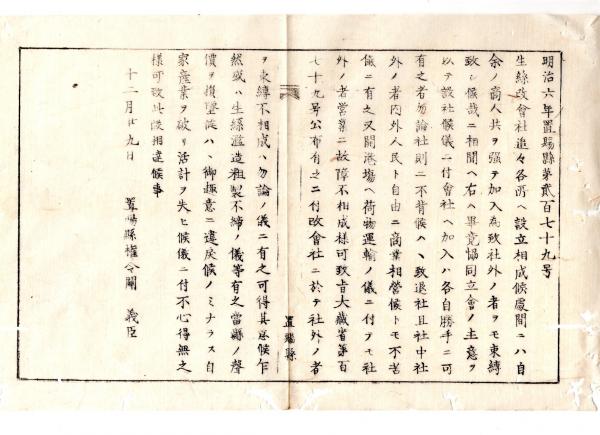 明治六年置賜縣第貳百七十九号
生絲改會社追々各所ヘ設立相成候處間ニハ自
余ノ商人共ヲ强テ加入為致社外ノ者ヲモ束縛
致シ候哉ニ相聞ヘ右ハ畢竟協同立會ノ主意ヲ
以テ設社候儀ニ付會社ヘ加入ハ各自勝手ニ可
有之者勿論社則ニ不背候ハヽ致退社且社中社
外ノ者内外人民ト自由ニ商業相營候トモ不苦
儀ニ有之又開港場ヘ荷物運輸ノ儀ニ付テモ社
外ノ者營業ニ故障不相成様可致旨大藏省第百
七十九号公布有之ニ付改會社ニ於テ社外ノ者
置賜縣
ヲ束縛不相成ハ勿論ノ儀ニ有之可得其意候乍
然或ハ生絲濫造粗製不締ノ儀等有之當縣ノ聲
價ヲ損墜候ハヽ御趣意ニ違戻候ノミナラス自
家産業ヲ破リ活計ヲ失ヒ候儀ニ付不心得無之
様可致此候相達候事
十二月廿九日
置賜縣權令關 義臣